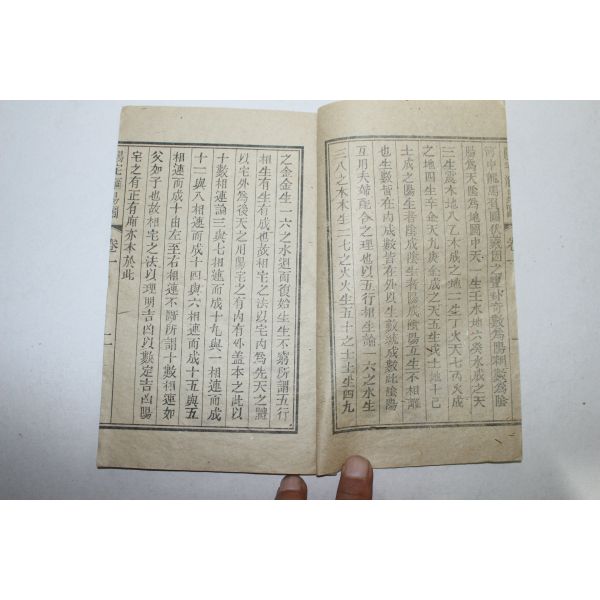 河中龍馬負圖伏羲因之畫卦奇數為陽耦數為陰
陽為天陰為地圖中天一生壬水地六癸水成之天
三生震木地八乙木成之地二生丁火天七丙火成
之地四生辛金天九庚金成之天五生戊土地十己
土成之陽生者陰成陰生者陽成陰陽互生不相離
也生數皆在內成數皆在外以生數統成數此陰陽
互用夫婦配合之理也以五行相生論一六之水生
三八之木木生二七之火火生五十之土土生四九
之金金生一六之水週而復始生生不窮所謂五行
相生有生有成也故相宅之法以宅內為先天之體
以宅外為後天之用陽宅之有內有外蓋本之此以
十數相連論三與七相連而成十九與一相連而成
十二與八相連而成十四與六相連而成十五與五
相連而成十由左至右相連不斷所謂十數相連如
父如子也故相宅之法以理明吉凶以數定吉凶陽
宅之有正有廂亦本於此
卷一
二